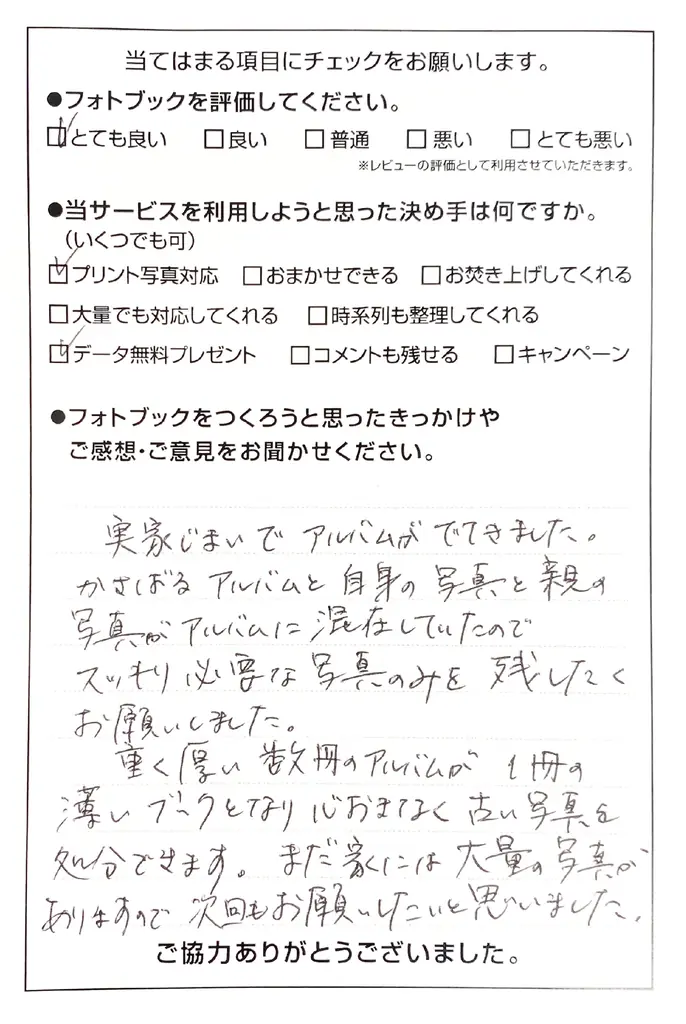 当てはまる項目にチェックをお願いします。
●フォトブックを評価してください。
☑とても良い ☐良い ☐普通 ☐悪い ☐とても悪い
※レビューの評価として利用させていただきます。
●当サービスを利用しようと思った決め手は何ですか。
（いくつでも可）
☑プリント写真対応 ☐おまかせできる ☐お焚き上げしてくれる
☐大量でも対応してくれる ☐時系列も整理してくれる
☑データ無料プレゼント ☐コメントも残せる ☐キャンペーン
●フォトブックをつくろうと思ったきっかけや
ご感想・ご意見をお聞かせください。
実家じまいで アルバムが でてきました。
かさばる アルバムと 自身の 写真と 親の
写真が アルバムに 混在していたので
スッキリ 必要な 写真のみを 残したく
お願いしました。
重く厚い 数冊のアルバムが 1冊の
薄い ブックとなり 心おきなく 古い写真を
処分できます。まだ家には 大量の写真が
ありますので 次回もお願いしたいと思いました。
ご協力ありがとうございました。